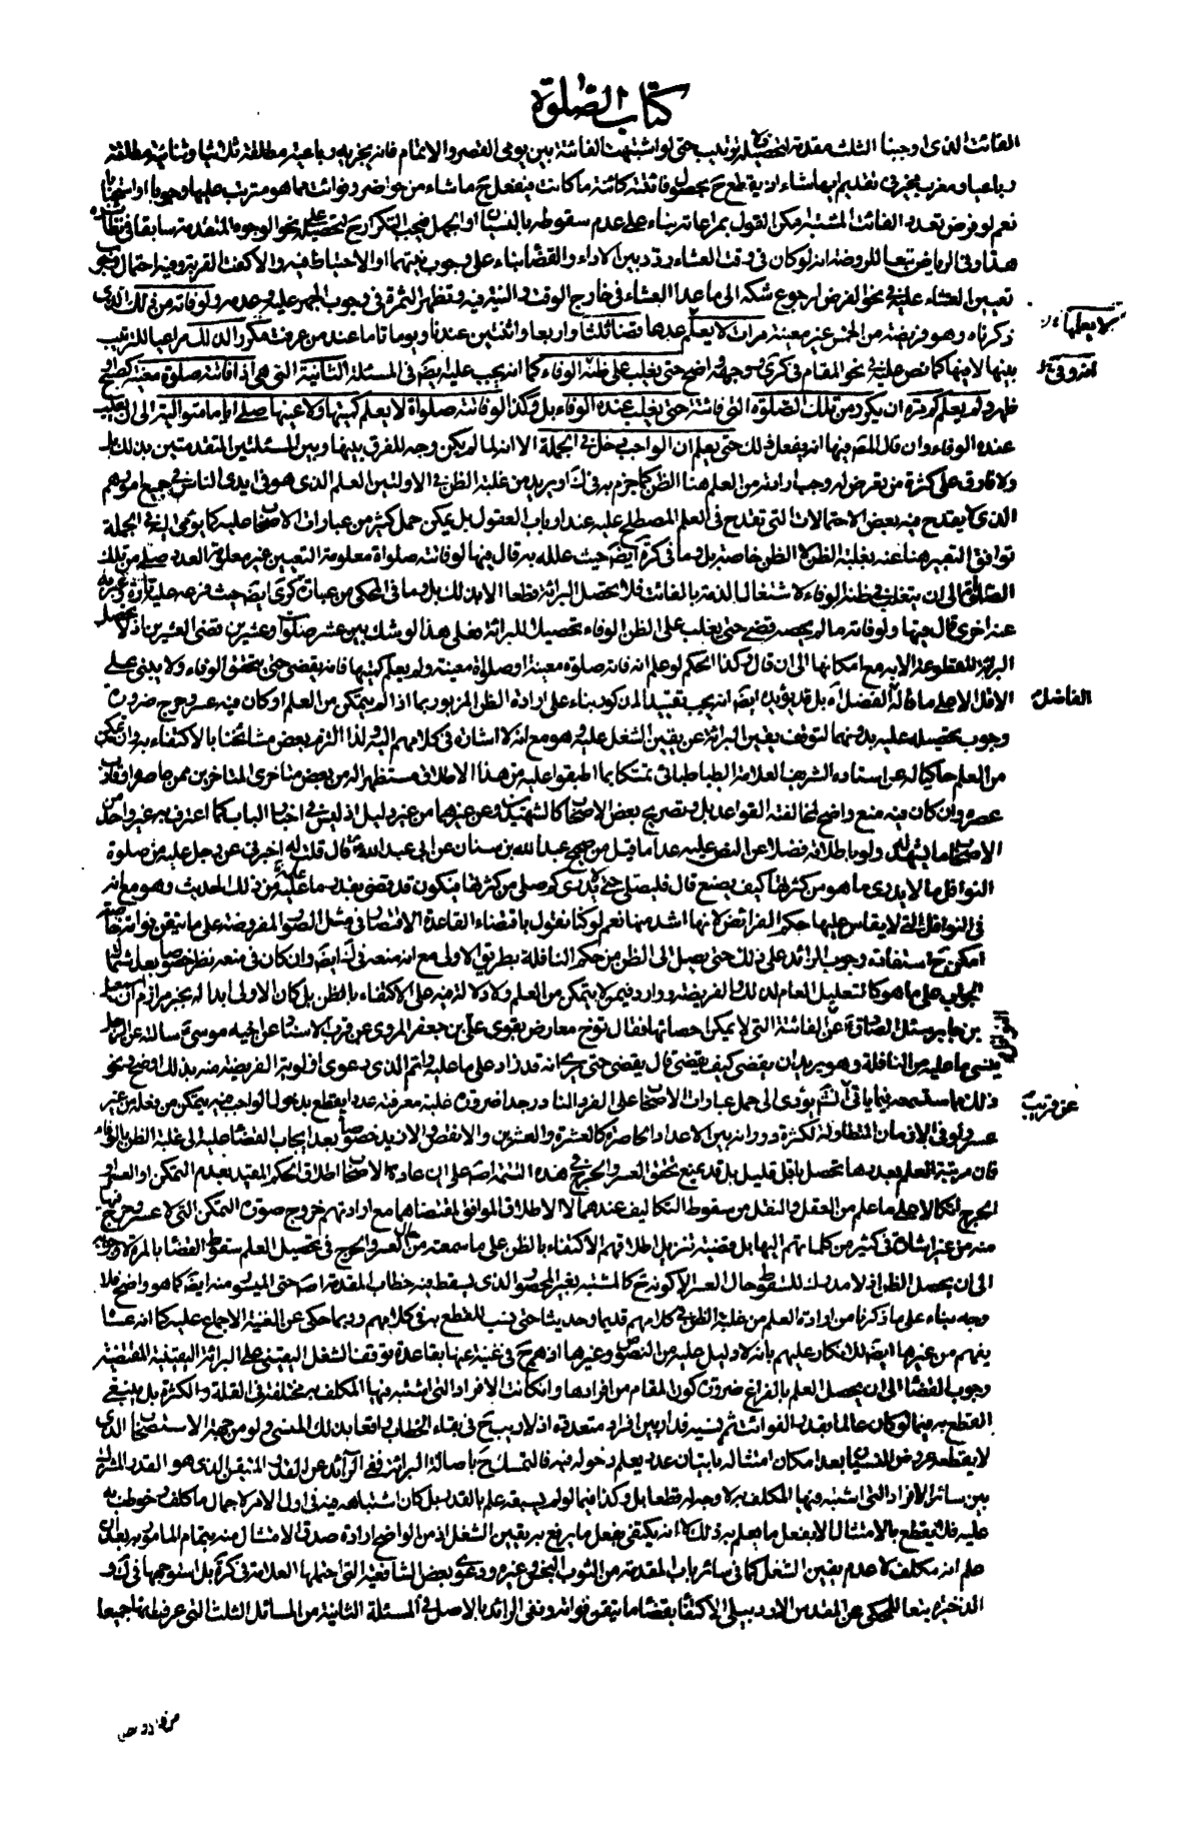 كتاب الصلوة
الفائت الذى اوجبنا الثلث مقدمة لتحصيله ترتيب حتى لو اشتبهت الفائتة بين يومى القصر والاتمام فانه يجزيه رباعية مطلقة ثلاثيا وثنائية مطلقة
رباعيا ومغرب يخير فى تقديم ايها شاء اذ به يقطع ح بحصول فائتة كائنة ما كانت فيفعل ح ما شاء من حواضر وفوائت مما هو مترتب عليها وجوبا او استحبابا
نعم لو فرض تعدد الفائت المشتبه امكن القول بمراعاته بناء على عدم سقوطه بالنسيان او الجهل فيجب التكرار ح لتحصيله على نحو الوجوه المتقدمة سابقا
هذا وفى الرياض تبعا للروضة انه لو كان فى وقت العشاء ردد بين الاداء والقضاء بناء على وجوب نيتهما او الاحتياط فيه والا كفت القربة وفيه احتمال
تعيين العشاء عليه فى نحو الفرض لرجوع شكه الى ما عدا العشاء فى خارج الوقت والنية فيه وتظهر الثمرة فى وجوب الجهر عليه وعدمه ولو فاته من ذلك الذى
ذكرناه وهو فريضة من الخمس غير معينة مرات لا يعلم عددها قضى ثلثا واربعا واثنتين عندنا ويوما تاما عند من عرفت مكررا لذلك مراعيا للترتيب
بينها لا بينها كما نص عليه فى نحو المقام فى كرى وجهه واضح حتى يغلب على ظنه الوفاء كما انه يجب عليه ايضا فى المسئلة الثانية التى هى اذا فاتته صلوة معينة كصبح او
ظهر ولم يعلم كم مرة ان يكرر من تلك الصلوة التى فاتته حتى يغلب عنده الوفاء بل وكذا لو فاتته صلوات لا يعلم كميتها ولا عينها صلى اياما متوالية الى ان يغلب
عنده الوفاء وان قال المصنف فيها انه يفعل ذلك حتى يعلم ان الواجب دخل فى الجملة الا انه لما لم يكن وجه للفرق بينها وبين المسئلتين المتقدمتين بذلك
ولا فارق على كثرة من تعرض له وجب ارادته من العلم هنا الظن كما جزم به فى ك او يريد من غلبة الظن فى الاولتين العلم الذى هو فى ايدى الناس فى جميع امورهم
الذى لا يقدح فيه بعض الاحتمالات التى تقدح فى العلم المصطلح عليه عند ارباب العقول بل يمكن حمل كثير من عبارات الاصحاب عليه كما يومى اليه فى الجملة
توافق التعبير هنا عنه بغلبة الظن لا الظن خاصة بل وما فى كرة ايضا حيث علله به قال فيها لو فاتته صلوات معلومة التعيين غير معلومة العدد صلى من تلك
الصلوات الى ان يتغلب فى ظنه الوفاء لاشتغال الذمة بالفائت فلا تحصل البرائة قطعا الا بذلك بل وما فى المحكى من عبارة كرى ايضا حيث فرعه عليه تارة
عنه اخرى قال فيها ولو فاته ما لم يحصه قضى حتى يغلب على الظن الوفاء تحصيلا للبرائة فعلى هذا لو شك بين عشر صلوات وعشرين قضى العشرين اذ لا تحصل
البرائة المقطوعة الا به مع امكانها الى ان قال وكذا الحكم لو علم انه فاته صلوة معينة او صلوات معينة ولم يعلم كميتها فانه يقضى حتى يتحقق الوفاء ولا يبنى على
الاقل الا على ما قاله الفاضل اه بل قد يؤيده ايضا انه يجب تقييد المذكور بناء على ارادة الظن المزبور بما اذا لم يتمكن من العلم او كان فيه عسر وحرج ضرورة
وجوب تحصيله عليه بدونهما لتوقف يقين البرائة عن يقين الشغل عليه وهو مع انه لا اشارة فى كلامهم اليه لذا التزم بعض مشائخنا بالاكتفاء به وان تمكن
من العلم حاكيا له عن استاده الشريف العلامة الطباطبائى متمسكا بما اطبقوا عليه من هذا الاطلاق مستظهرا له من بعض متاخرى المتاخرين ممن عاصره او قارب
عصره وان كان فيه منع واضح لمخالفته القواعد بل وتصريح بعض الاصحاب كالشهيدين وعن غيرهما من غير دليل اذ ليس فى اخبار الباب كما اعترف به غير واحد من
الاصحاب ما يشهد له ولو باطلاقه فضلا عن النص عليه عدا ما قيل من صحيح عبد الله بن سنان عن ابى عبد الله ع قال قلت له اخبرنى عن رجل عليه من صلوة
النوافل ما لا يدرى ما هو من كثرتها كيف يصنع قال فليصل حتى لا يدرى كم صلى من كثرتها فيكون قد قضى بقدر ما عليه من ذلك الحديث وهو مع انه
فى النوافل التى لا يقاس عليها حكم الفرائض لانها اشد منها نعم لو كنا نقول باقتضاء القاعدة الاقتصار فى مثل الصور المفروضة على ما تيقن فواته
امكن ح استفادة وجوب الزائد على ذلك حتى يصل الى الظن من حكم النافلة بطريق الاولى مع انه منعه فى ك ايضا وان كان فى منعه نظر خصوصا بعد اشتمال
الجواب على ما هو كالتعليل العام لذلك والفريضة وارد فيمن لا يتمكن من العلم ولا دلالة فيه على الاكتفاء بالظن بل كان الاولى ابداله بخبر مرازم ان اسمعيل
بن جابر سئل الصادق ع عن الفائتة التى لا يمكن احصائها فقال توخ معارض بقوى على بن جعفر المروى عن قرب الاسناد عن اخيه موسى ع سالته عن الرجل
ينسى ما عليه من النافلة وهو يريد ان يقضى كيف يقضى قال يقضى حتى يرى انه قد زاد على ما عليه واتم الذى دعوى اولوية الفريضة منه بذلك اوضح نحو
ذلك ما ستسمعه فيما ياتى انشاء الله يؤدى الى حمل عبارات الاصحاب على الفرد النادر جدا ضرورة غلبة معرفته عددا يقطع بدخول الواجب فيه يتمكن من فعله من غير
عسر ولو فى الازمان المتطاولة لكثرة دورانه بين الاعداد الحاصرة كالعشرة والعشرين والانقص والازيد خصوصا بعد ايجاب القضاء عليه الى غلبة الظن بالوفاء
فان مرتبة العلم بعدها تحصل باقل قليل بل قد يمنع تحقق العسر والحرج فى هذه التتمة اصلا على ان عادة الاصحاب اطلاق الحكم المقيد بعدم التمكن او العسر او
الحرج اتكالا على ما علم من العقل والنقل من سقوط التكاليف عندهما لا الاطلاق الموافق لمقتضاهما مع ارادتهم خروج صورة التمكن التى لا عسر ولا حرج فيها
منه من غير اشارة فى كثير من كلماتهم اليها بل قضية تنزيل اطلاقهم الاكتفاء بالظن على ما سمعته من حال العسر والحرج فى تحصيل العلم سقوط القضاء بالمرة لا وجوبه
الى ان يحصل الظن اذ لا مدرك للسقوط حال العسر الا كونه ح كالمشتبه بغير المحصور الذى يسقط فيه خطاب المقدمة اصلا حتى الميسور منه ايضا كما هو واضح فلا
وجه بناء على ما ذكرنا من ارادة العلم من غلبة الظن فى كلامهم قديما وحديثا حتى نسب للقطع به فى كلامهم وربما حكى عن الغنية الاجماع عليه كما انه عساه
يفهم من غيرها ايضا للانكار عليهم بانه لا دليل عليه من النصوص وغيرها اذ هم ح فى غنية عنها بقاعدة توقف الشغل اليقينى على البرائة اليقينية المقتضية
وجوب القضاء الى ان يحصل العلم بالفراغ ضرورة كون المقام من افرادها وان كانت الافراد التى اشتبه فيها المكلف به مختلفة فى القلة والكثرة بل ينبغى
القطع به فيما لو كان عالما بقدر الفوائت ثم نسيه فدار بين افراد متعددة اذ لا ريب ح فى بقاء الخطاب واقعا بذلك المنسى ولو من جهة الاستصحاب الذى
لا يقطعه عروض النسيان بعد امكان امتثاله باتيان عدد يعلم دخوله فيه فالتمسك ح باصالة البرائة فى الزائد عن القدر المتيقن الذى هو القدر المشترك
بين سائر الافراد التى اشتبه فيها المكلف به لا وجه له قطعا بل وكذا فيما لو لم يسبقه علم بالقدر بل كان اشتباهه فيه فى اول الامر لاجمال ما كلف وخوطب به
عليه فلا يقطع بالامتثال الا بفعل ما يعلم به ذلك لا انه يكتفى بفعل ما يرفع به يقين الشغل اذ من الواضح ارادة صدق الامتثال منه بتمام المامور به بعد ان
علم انه مكلف لا عدم يقين الشغل كما فى سائر باب المقدمة من الثوب النجس وغيره ودعوى بعض الشافعية التى احتملها العلامة فى كرة بل استوجهها فى ك و
الذخيرة تبعا للمحكى عن المقدس الاردبيلى الاكتفاء بقضاء ما تيقن فواته ونفى الزائد بالاصل فى المسئلة الثانية من المسائل الثلث التى عرفتها جميعا
لا يعلمها
الفاضل
عن قريب